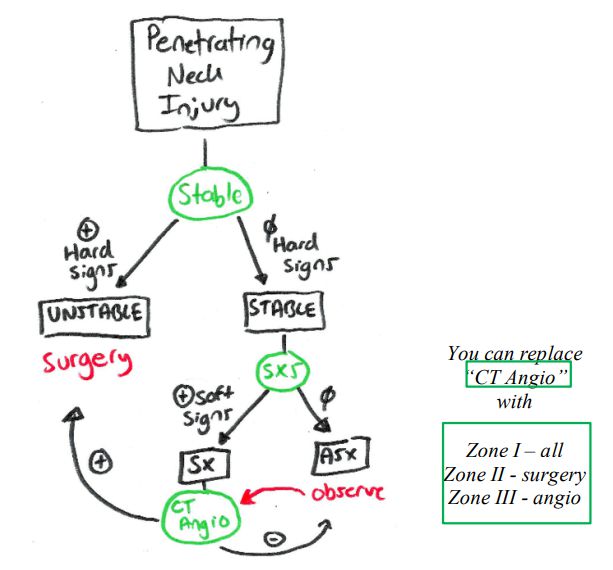 Penetrating
Neck
Injury
Stable
⊕
Hard
signs
∅
Hard
signs
UNSTABLE
STABLE
surgery
SXS
⊕ Soft
signs
∅
Sx
ASX
observe
CT
Angio
⊕
⊖
You can replace
“CT Angio”
with
Zone I – all
Zone II - surgery
Zone III - angio